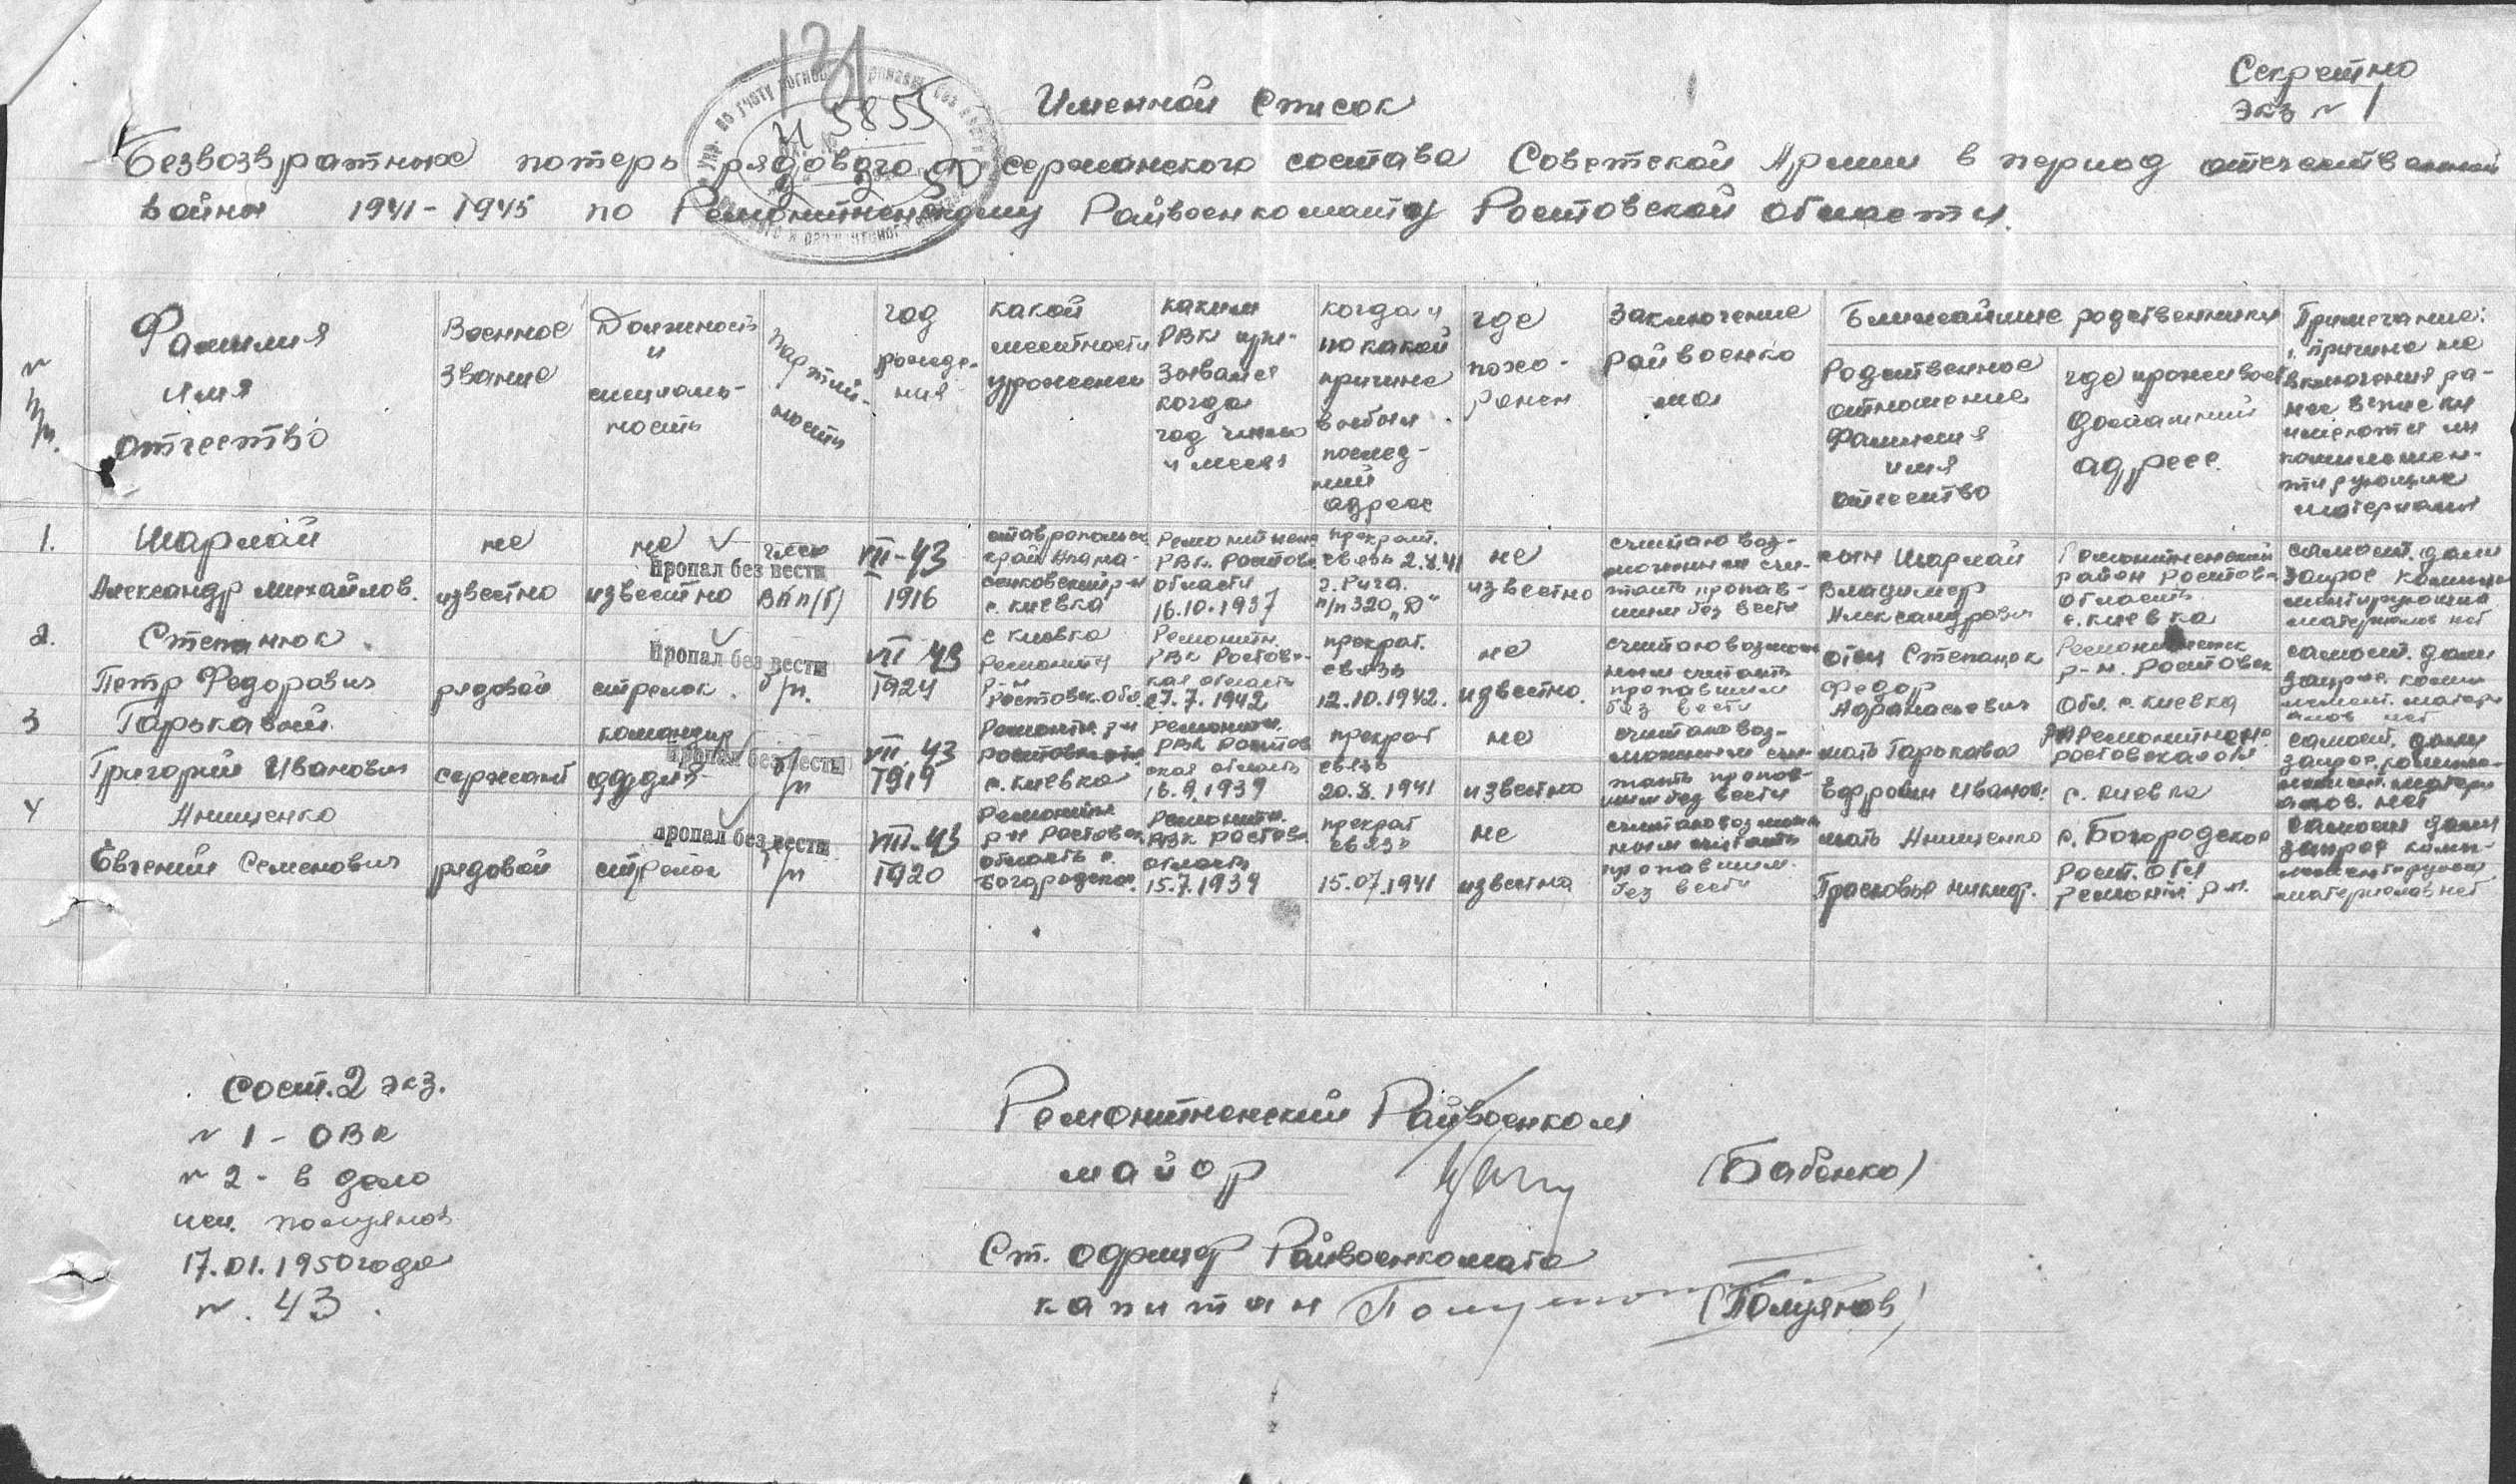 Секретно
экз № 1
131
№ 5855
Именной список
Безвозвратных потерь рядового и сержанского состава Советской Армии в период отечественной
войны 1941-1945 по Ремонтненскому Райвоенкомату Ростовской области.
№
п/п.
Фамилия
имя
отчество
Военное
звание
Должность
и
специаль-
ность
Партий-
ность
год
рожде-
ния
какой
местности
урожен
каким
РВК при-
зывался
когда
год число
и месяц
когда и
по какой
причине
выбыл
послед-
ний
адрес
где
похо-
ронен
Заключение
райвоенко
ма
Ближайшие родственники
Родственное
отношение
Фамилия
имя
отчество
где проживает
домашний
адрес.
Примечание:
причина не
включения ра-
нее в списки
имеются ли
материалы
1.
Шарлай
Александр Михайлов.
не
известно
не
известно
Пропал без вести
член
ВКП(б)
VII-43
1916
ставропольск
край Апана-
сенковский р-н
с. Киевка
Ремонтнен
РВК Ростов
области
16.10.1937
прекрат.
связь 2.8.41
г. Рига.
п/п 320 "Д"
не
известно
считаю воз-
можным счи-
тать пропав-
шим без вести
сын Шарлай
Владимер
Александрович
Ремонтненский
район Ростов-
область
с. Киевка
самост. дали
запрос
материалов нет
2.
Степанюк
Петр Федорович
рядовой
стрелок.
Пропал без вести
б/п.
VII 43
1924
с Киевка
Ремонтн
р-н
Ростовск. обл.
Ремонтн.
РВК Ростов-
кая область
27.7.1942
прекрат.
связь
12.10.1942.
не
известно.
считаю возмож
ным считать
пропавшим
без вести
отец Степанюк
Федор
Афанасьевич
р-н. Ростовск
обл. с. Киевка
самост. дали
запрос.
нет
3
Горькавый.
Григорий Иванович
сержант
командир
Пропал без вести
б/п
VII 43
1919
Ремонтн. р-н
с. Киевка
Ремонтн.
РВК Ростов
ская область
16.9.1939
прекрат
связь
20.8.1941
не
известно
считаю воз-
можным счи-
тать пропав-
шим без вести
мать Горькава
Ефросин Иванов.
с. Киевка
самост. дали
запрос,
нет
4
Анищенко
Евгений Семенович
рядовой
стрелок
пропал без вести
б/п
VII-43
1920
Ремонтн
р-н Ростовск
область с.
Богородское.
Ремонтн.
РВК Ростов.
область
15.7.1939
прекрат
связь
15.07.1941
не
известно
считаю возможн
ным считать
пропавшим.
без вести
мать Анищенко
Прасковья Никиф.
с. Богородское
Рост. обл
Ремонтн р-н.
самост дали
запрос
материалов нет
Сост. 2 экз.
№ 1 - ОВК
№ 2 - в дело
исп. Полуянов
17.01.1950 года
№. 43.
Ремонтненский Райвоенком
майор (Бабенко)
Ст. офицер Райвоенкомата
капитан (Полуянов)